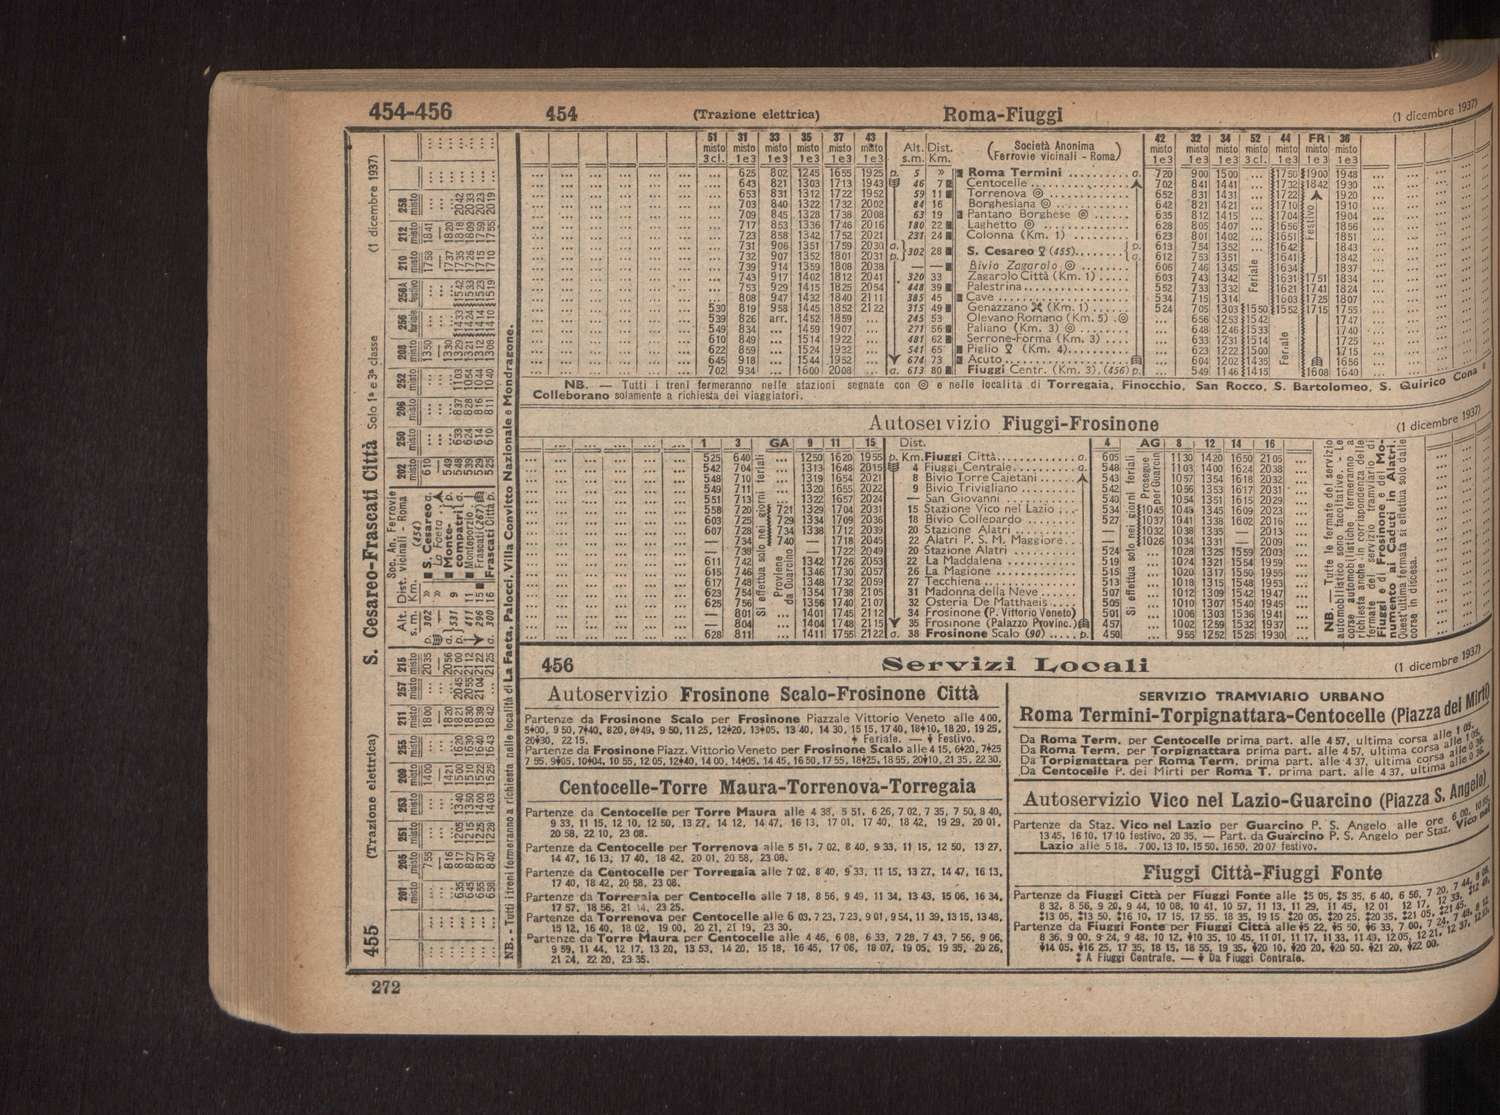 454-456
454 (Trazione elettrica) Roma-Fiuggi (1 dicembre 1937)
51 31 33 35 37 43 Alt. Dist. (Società Anonima Ferrovie vicinali - Roma) 42 32 34 52 44 FR 36
misto misto misto misto misto misto s.m. Km. misto misto misto misto misto misto misto
3 cl. 1 e 3 1 e 3 1 e 3 1 e 3 1 e 3 1 e 3 1 e 3 1 e 3 3 cl. 1 e 3 1 e 3 1 e 3
... 625 802 1245 1655 1925 p. 5 » Roma Termini a. 720 900 1500 ... 1750 1900 1948
... 643 821 1303 1713 1943 46 7 Centocelle 702 841 1441 ... 1732 1842 1930
... 653 831 1312 1722 1952 59 11 Torrenova 652 831 1431 ... 1722 1920
... 703 840 1322 1732 2002 84 16 Borghesiana 642 821 1421 ... 1710 1910
... 709 845 1328 1738 2008 63 19 Pantano Borghese 635 812 1415 ... 1704 1904
... 717 853 1336 1746 2016 180 22 Laghetto 628 805 1407 ... 1656 1856
... 723 858 1342 1752 2021 231 24 Colonna (Km. 1) 623 801 1402 ... 1651 1851
... 731 906 1351 1759 2030 a. 302 28 S. Cesareo (455) p. 613 754 1352 1642 1843
... 732 907 1352 1801 2031 p. a. 612 753 1351 1641 1842
... 739 914 1359 1808 2038 — — Bivio Zagarolo 606 746 1345 1634 1837
... 743 917 1402 1812 2041 320 33 Zagarolo Città (Km. 1) 603 743 1342 1631 1751 1834
... 753 929 1415 1825 2054 448 39 Palestrina 552 733 1332 1621 1741 1824
... 808 947 1432 1840 2111 385 45 Cave 534 715 1314 1603 1725 1807
530 819 958 1445 1852 2122 315 49 Genazzano (Km. 1) 524 705 1303 1550 1552 1715 1755
539 826 arr. 1452 1859 ... 245 53 Olevano Romano (Km. 5) ... 656 1253 1542 1747
549 834 ... 1459 1907 ... 271 56 Paliano (Km. 3) ... 648 1246 1533 1740
610 849 ... 1514 1922 ... 481 62 Serrone-Forma (Km. 3) ... 633 1231 1514 1725
622 859 ... 1524 1932 ... 541 65 Piglio (Km. 4) ... 623 1222 1500 1715
645 918 ... 1544 1952 ... 674 73 Acuto ... 604 1202 1435 1656
702 934 ... 1600 2008 ... a. 613 80 Fiuggi Centr. (Km. 3) (456) p. ... 549 1146 1415 1608 1640
Feriale
Feriale
Festivo
NB. — Tutti i treni fermeranno nelle stazioni segnate con ◎ e nelle località di Torregaia, Finocchio, San Rocco, S. Bartolomeo, S. Quirico Cona e
Colleborano solamente a richiesta dei viaggiatori.
Autoservizio Fiuggi-Frosinone (1 dicembre 1937)
1 3 GA 9 11 15 Dist. 4 AG 8 12 14 16
525 640 1250 1620 1955 p. Km. Fiuggi Città a. 605 1130 1420 1650 2105
542 704 1313 1648 2015 4 Fiuggi Centrale 548 1103 1400 1624 2038
548 710 1319 1654 2021 8 Bivio Torre Cajetani 543 1057 1354 1618 2032
549 711 1320 1655 2022 9 Bivio Trivigliano 542 1056 1353 1617 2031
551 713 1322 1657 2024 — San Giovanni 540 1054 1351 1615 2029
558 720 721 1329 1704 2031 15 Stazione Vico nel Lazio 534 1045 1048 1345 1609 2023
603 725 729 1334 1709 2036 18 Bivio Collepardo 527 1037 1041 1338 1602 2016
607 728 734 1338 1712 2039 20 Stazione Alatri — 1032 1038 1335 — 2013
— 734 740 — 1718 2045 22 Alatri P. S. M. Maggiore — 1026 1034 1331 — 2009
— 738 — 1722 2049 20 Stazione Alatri 524 1028 1325 1559 2003
611 742 1342 1726 2053 22 La Maddalena 519 1024 1321 1554 1959
615 746 1346 1730 2057 26 La Magione 515 1020 1317 1550 1955
617 748 1348 1732 2059 27 Tecchiena 513 1018 1315 1548 1953
623 754 1354 1738 2105 31 Madonna della Neve 507 1012 1309 1542 1947
625 756 1356 1740 2107 32 Osteria De Matthaeis 505 1010 1307 1540 1945
— 801 1401 1745 2112 34 Frosinone (P. Vittorio Veneto) 501 1006 1303 1536 1941
— 804 1404 1748 2115 35 Frosinone (Palazzo Provinc.) 457 1002 1259 1532 1937
628 811 1411 1755 2122 a. 38 Frosinone Scalo (90) p. 450 955 1252 1525 1930
Si effettua solo nei giorni feriali
Proviene da Guarcino
Si effettua solo nei giorni feriali
Prosegue per Guarcin
NB. — Tutte le fermate del servizio
automobilistico sono facoltative. - Le
corse automobilistiche fermeranno a
richiesta anche in corrispondenza delle
fermate del servizio tramviario di
Fiuggi e di Frosinone e del Mo-
numento ai Caduti in Alatri.
Quest'ultima fermata si effettua solo dalle
corse in discesa.
456 Servizi Locali (1 dicembre 1937)
Autoservizio Frosinone Scalo-Frosinone Città
Partenze da Frosinone Scalo per Frosinone Piazzale Vittorio Veneto alle 4 00,
5♦00, 9 50, 7♦40, 8 20, 8♦49, 9 50, 11 25, 12♦20, 13♦05, 13 40, 14 30, 15 15, 17 40, 18♦10, 18 20, 19 25,
20♦30, 22 15. ♦ Feriale. — ♦ Festivo.
Partenze da Frosinone Piazz. Vittorio Veneto per Frosinone Scalo alle 4 15, 6♦20, 7♦25
7 55, 9♦05, 10♦04, 10 55, 12 05, 12♦40, 14 00, 14♦05, 14 45, 16 50, 17 55, 18♦25, 18 55, 20♦10, 21 35, 22 30.
Centocelle-Torre Maura-Torrenova-Torregaia
Partenze da Centocelle per Torre Maura alle 4 38, 5 51, 6 26, 7 02, 7 35, 7 50, 8 40,
9 33, 11 15, 12 10, 12 50, 13 27, 14 12, 14 47, 16 13, 17 01, 17 40, 18 42, 19 29, 20 01,
20 58, 22 10, 23 08.
Partenze da Centocelle per Torrenova alle 5 51, 7 02, 8 40, 9 33, 11 15, 12 50, 13 27,
14 47, 16 13, 17 40, 18 42, 20 01, 20 58, 23 08.
Partenze da Centocelle per Torregaia alle 7 02, 8 40, 9 33, 11 15, 13 27, 14 47, 16 13,
17 40, 18 42, 20 58, 23 08.
Partenze da Torregaia per Centocelle alle 7 18, 8 56, 9 49, 11 34, 13 43, 15 06, 16 34,
17 57, 18 56, 23 25.
Partenze da Torrenova per Centocelle alle 6 03, 7 23, 7 23, 9 01, 9 54, 11 39, 13 15, 13 48,
15 12, 16 40, 18 02, 19 00, 20 21, 21 19, 23 30.
Partenze da Torre Maura per Centocelle alle 4 46, 6 08, 6 33, 7 28, 7 43, 7 56, 9 06,
9 59, 11 44, 12 17, 13 20, 13 53, 14 20, 15 18, 16 45, 17 06, 18 07, 19 05, 19 35, 20 26,
21 24, 22 20, 23 35.
SERVIZIO TRAMVIARIO URBANO
Roma Termini-Torpignattara-Centocelle (Piazza dei Mirti)
Da Roma Term. per Centocelle prima part. alle 4 57, ultima corsa alle 1 05.
Da Roma Term. per Torpignattara prima part. alle 4 57, ultima corsa alle 1 05.
Da Torpignattara per Roma Term. prima part. alle 4 37, ultima corsa alle 0 36.
Da Centocelle P. dei Mirti per Roma T. prima part. alle 4 37, ultima alle 0 36.
Autoservizio Vico nel Lazio-Guarcino (Piazza S. Angelo)
Partenze da Staz. Vico nel Lazio per Guarcino P. S. Angelo alle ore 6 00,
13 45, 16 10, 17 10 festivo, 20 35. — Part. da Guarcino P. S. Angelo per Staz. Vico nel
Lazio alle 5 18, 7 00, 13 10, 15 50, 16 50, 20 07 festivo.
Fiuggi Città-Fiuggi Fonte
Partenze da Fiuggi Città per Fiuggi Fonte alle ‡5 05, ‡5 35, 6 40, 6 56, 7 20, 7 44,
8 32, 8 56, 9 20, 9 44, 10 08, 10 41, 10 57, 11 13, 11 29, 11 45, 12 01 12 17, 12 33,
‡13 05, ‡13 50, ‡16 10, 17 15, 17 55, 18 35, 19 15 ‡20 05, ‡20 25, ‡20 35, ‡21 05,
Partenze da Fiuggi Fonte per Fiuggi Città alle ♦5 22, ♦5 50, ♦6 33, 7 00, 7 24, 7 48,
8 36, 9 00, 9 24, 9 48, 10 12, ♦10 35, 10 45, 11 01, 11 17, 11 33, 11 49, 12 05, 12 21, 12 37,
♦14 05, ♦16 25, 17 35, 18 15, 18 55, 19 35, ♦20 10, ♦20 20, ♦20 50, ♦21 20, ♦22 00.
‡ A Fiuggi Centrale. — ♦ Da Fiuggi Centrale.
455 (Trazione elettrica) S. Cesareo-Frascati Città Solo 1ª e 3ª classe (1 dicembre 1937)
201 205 251 253 209 255 211 257 215 Alt. Dist. Soc. An. Ferrovie vicinali - Roma 202 250 206 252 208 256 256A 210 212 258
misto misto misto misto misto misto misto misto misto s. m. Km. (454) misto misto misto misto misto feriale festivo misto misto misto
... 755 ... ... 1400 ... 1800 ... 2035 p. 302 » S. Cesareo a. 610 ... ... ... 1350 ... ... 1758 1841 ...
» La Faeta
... 816 ... ... 1421 ... 1820 ... 2056 a. 531 9 Monte- p. 549 ... ... ... 1330 ... ... 1737 1820 ...
635 817 1205 1340 1500 1620 1821 2045 2100 p. compatri a. 548 633 837 1103 1329 1433 1542 1735 1818 2042
645 827 1215 1350 1510 1630 1830 2055 2112 411 11 Monteporzio 539 624 828 1054 1321 1424 1533 1726 1809 2033
655 837 1225 1400 1522 1640 1839 2104 2122 296 15 Frascati (267) 529 614 816 1044 1312 1414 1523 1715 1759 2023
658 840 1228 1403 1525 1643 1842 ... 2125 a. 300 16 Frascati Città p. 525 610 811 1040 1308 1410 1519 1710 1755 2019
NB. - Tutti i treni fermeranno a richiesta nelle località di La Faeta, Palocci, Villa Convitto Nazionale e Mondragone.
272